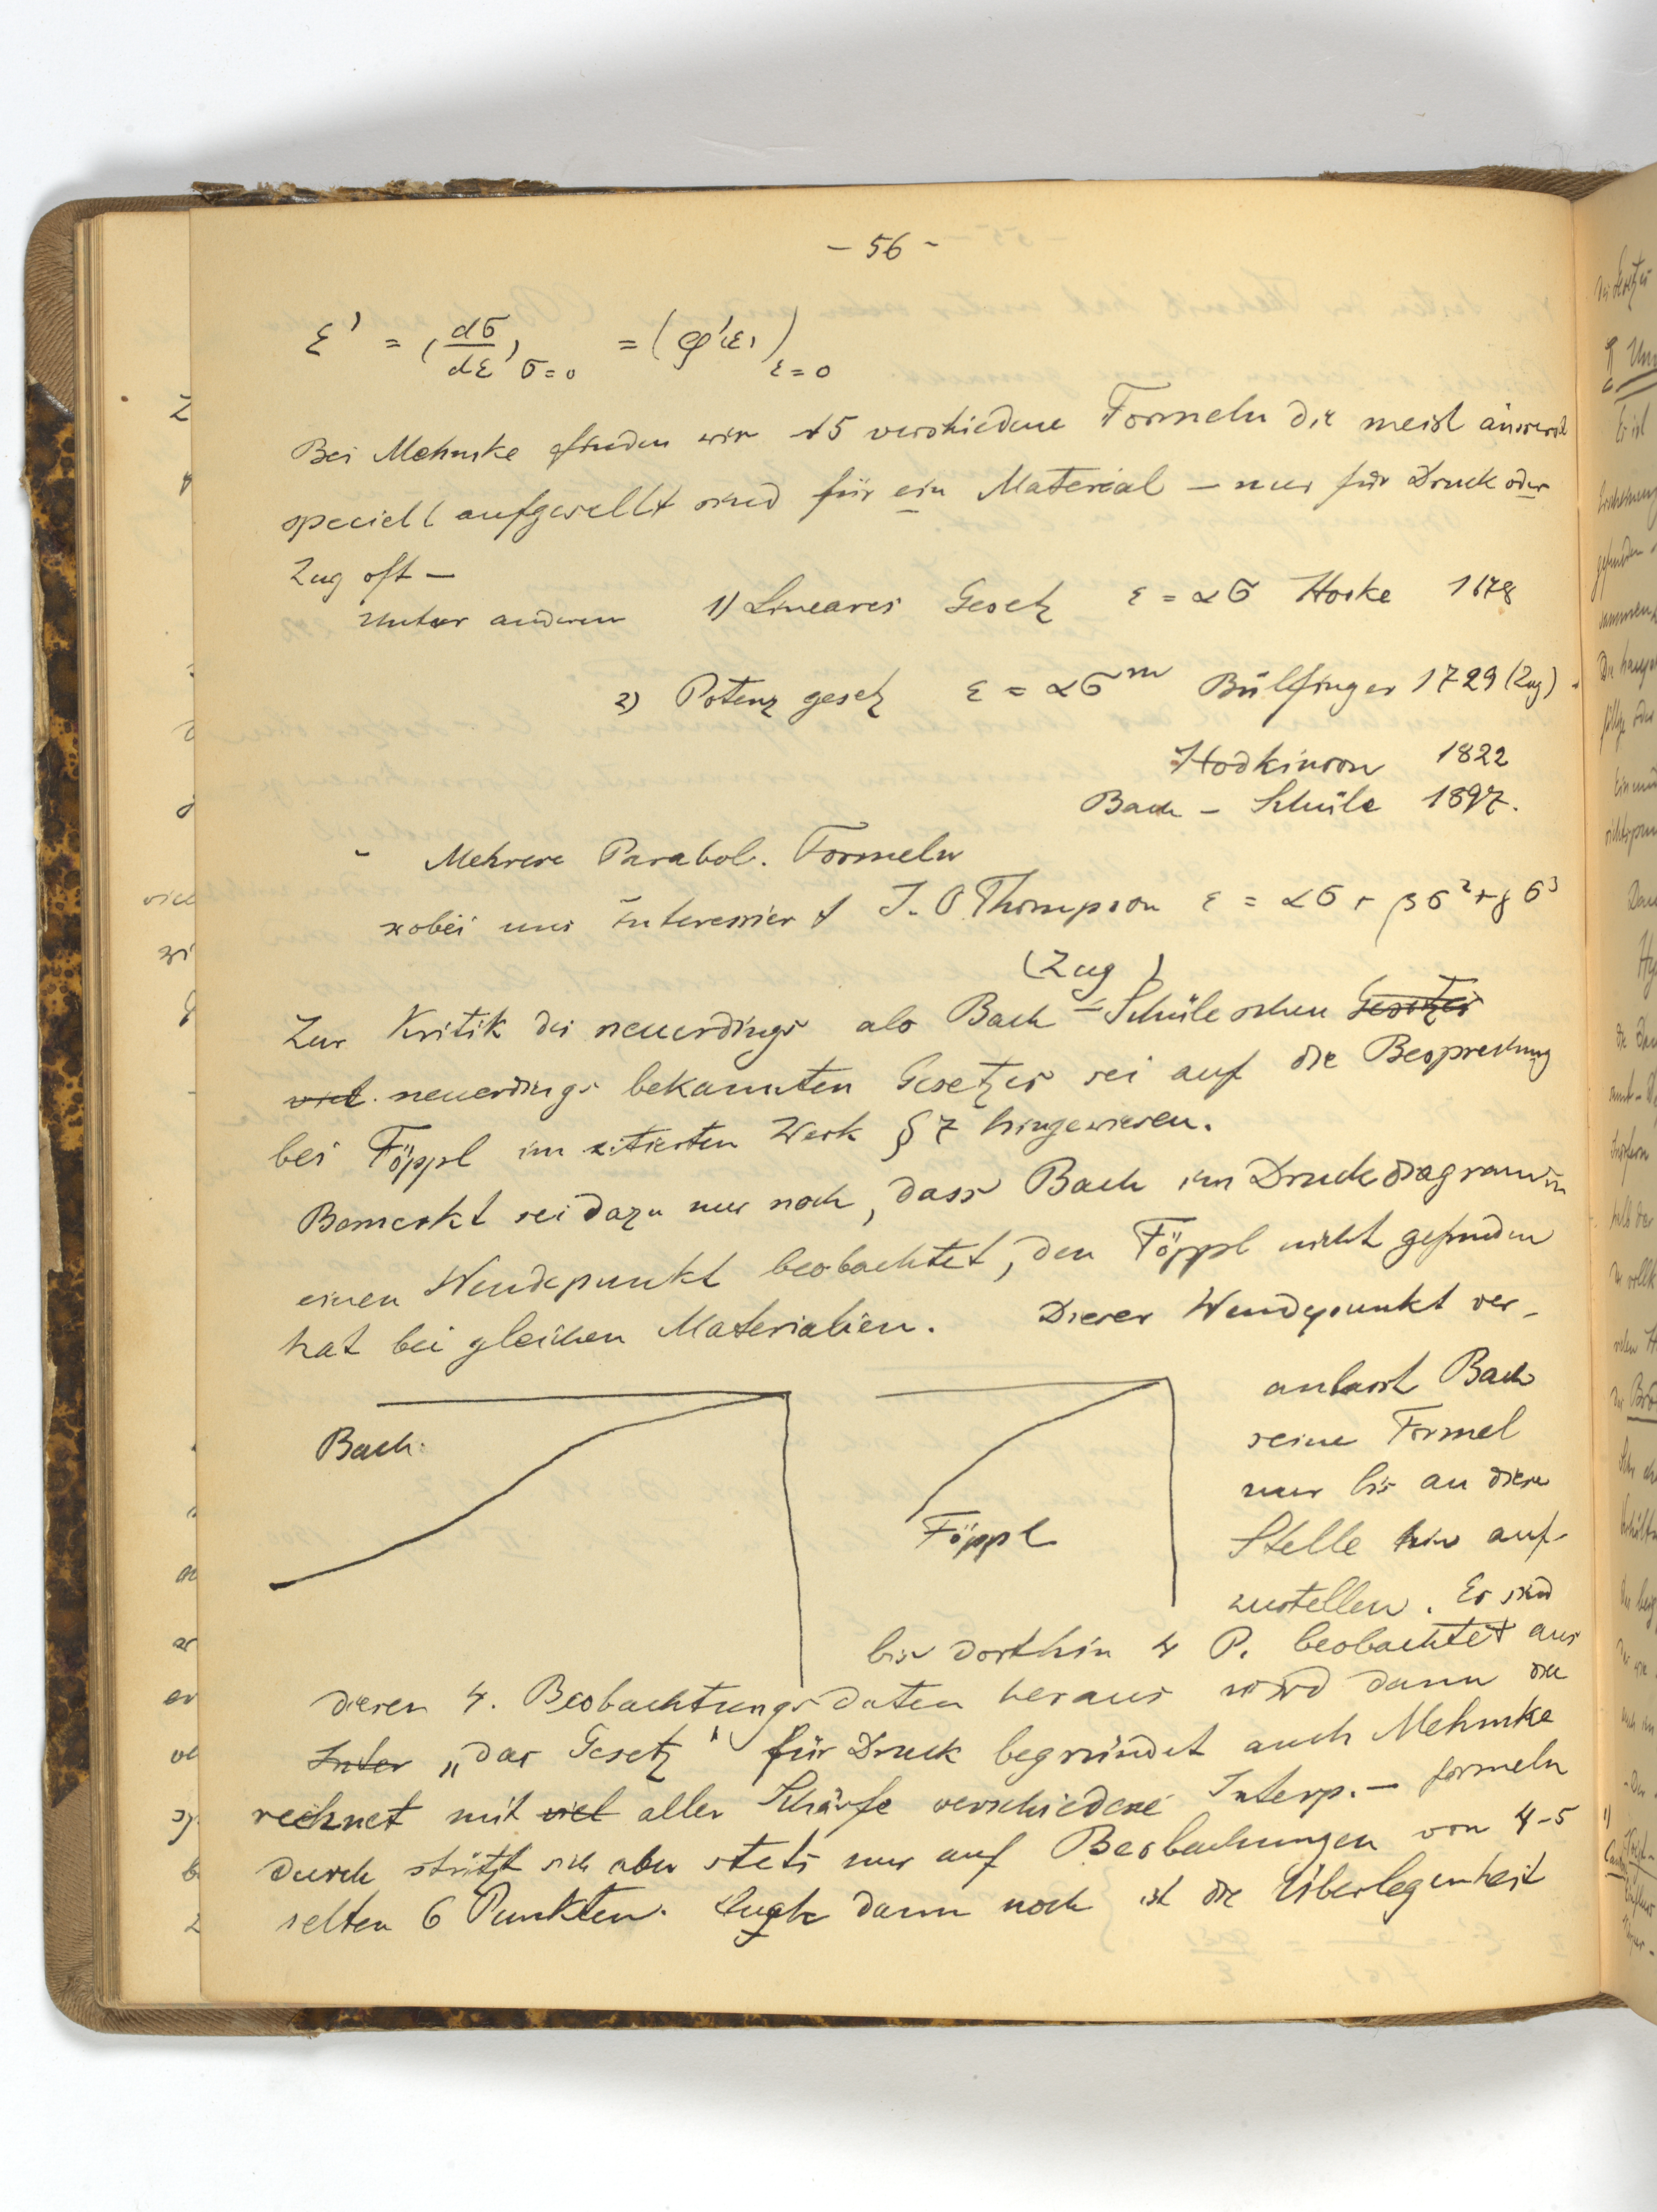 - 56 -
ε' = (dσ/dε)σ=0 = (φ'(ε))ε=0
Bei Mehmke finden wir 15 verschiedene Formeln die meist äusserst
speciell aufgestellt sind für ein Material – nur für Druck oder
Zug oft –
Unter anderen 1) Lineares Gesetz ε = ασ Hooke 1678
2) Potenz gesetz ε = ασ^m Bülfinger 1729 (Zug)
Hodkinson 1822
Bach - Schüle 1897.
Mehrere Parabol. Formeln
wobei uns interessiert J. O. Thompson ε = ασ + βσ² + γσ³
(Zug)
Zur Kritik des neuerdings als Bach - Schüleschen Gesetzes
viel neuerdings bekannten Gesetzes sei auf die Besprechung
bei Föppl im zitierten Werk § 7 hingewiesen.
Bemerkt sei dazu nur noch, dass Bach im Druckdiagramm
einen Wendepunkt beobachtet, den Föppl nicht gefunden
hat bei gleichen Materialien. Dieser Wendepunkt ver-
anlasst Bach
seine Formel
nur bis an diese
Stelle hin auf-
zustellen. Es sind
Bach.
Föppl
bis dorthin 4 P. beobachtet aus
diesen 4. Beobachtungsdaten heraus wird dann die
Inter „das Gesetz" für Druck begründet auch Mehmke
rechnet mit viel aller Schärfe verschiedene Interp. - formeln
durch stützt sich aber stets nur auf Beobachungen von 4-5
selten 6 Punkten. Auch dann noch ist die Überlegenheit